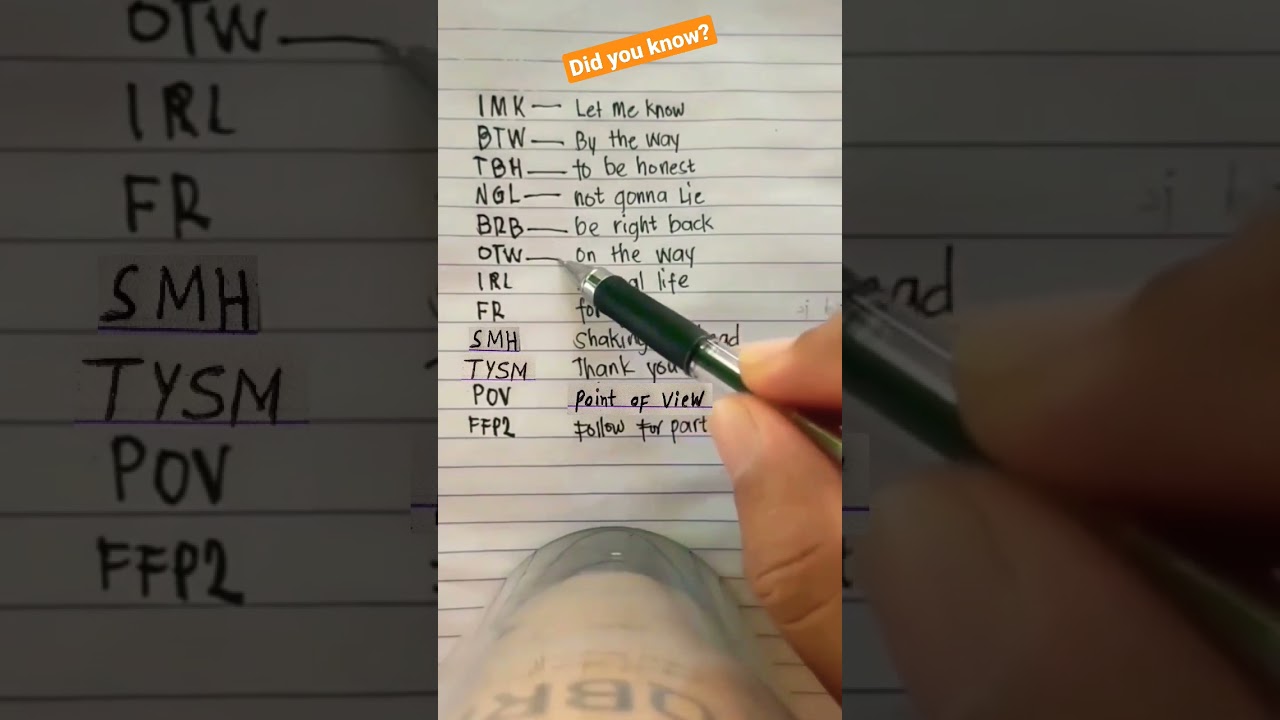 Did you know?
IMK — Let me know
BTW — By the way
TBH — to be honest
NGL — not gonna Lie
BRB — be right back
OTW — on the way
IRL life
FR
SMH Shaking
TYSM Thank you
POV Point of View
FFP2 Follow For part
OTW —
IRL
FR
SMH
TYSM
POV
FFP2